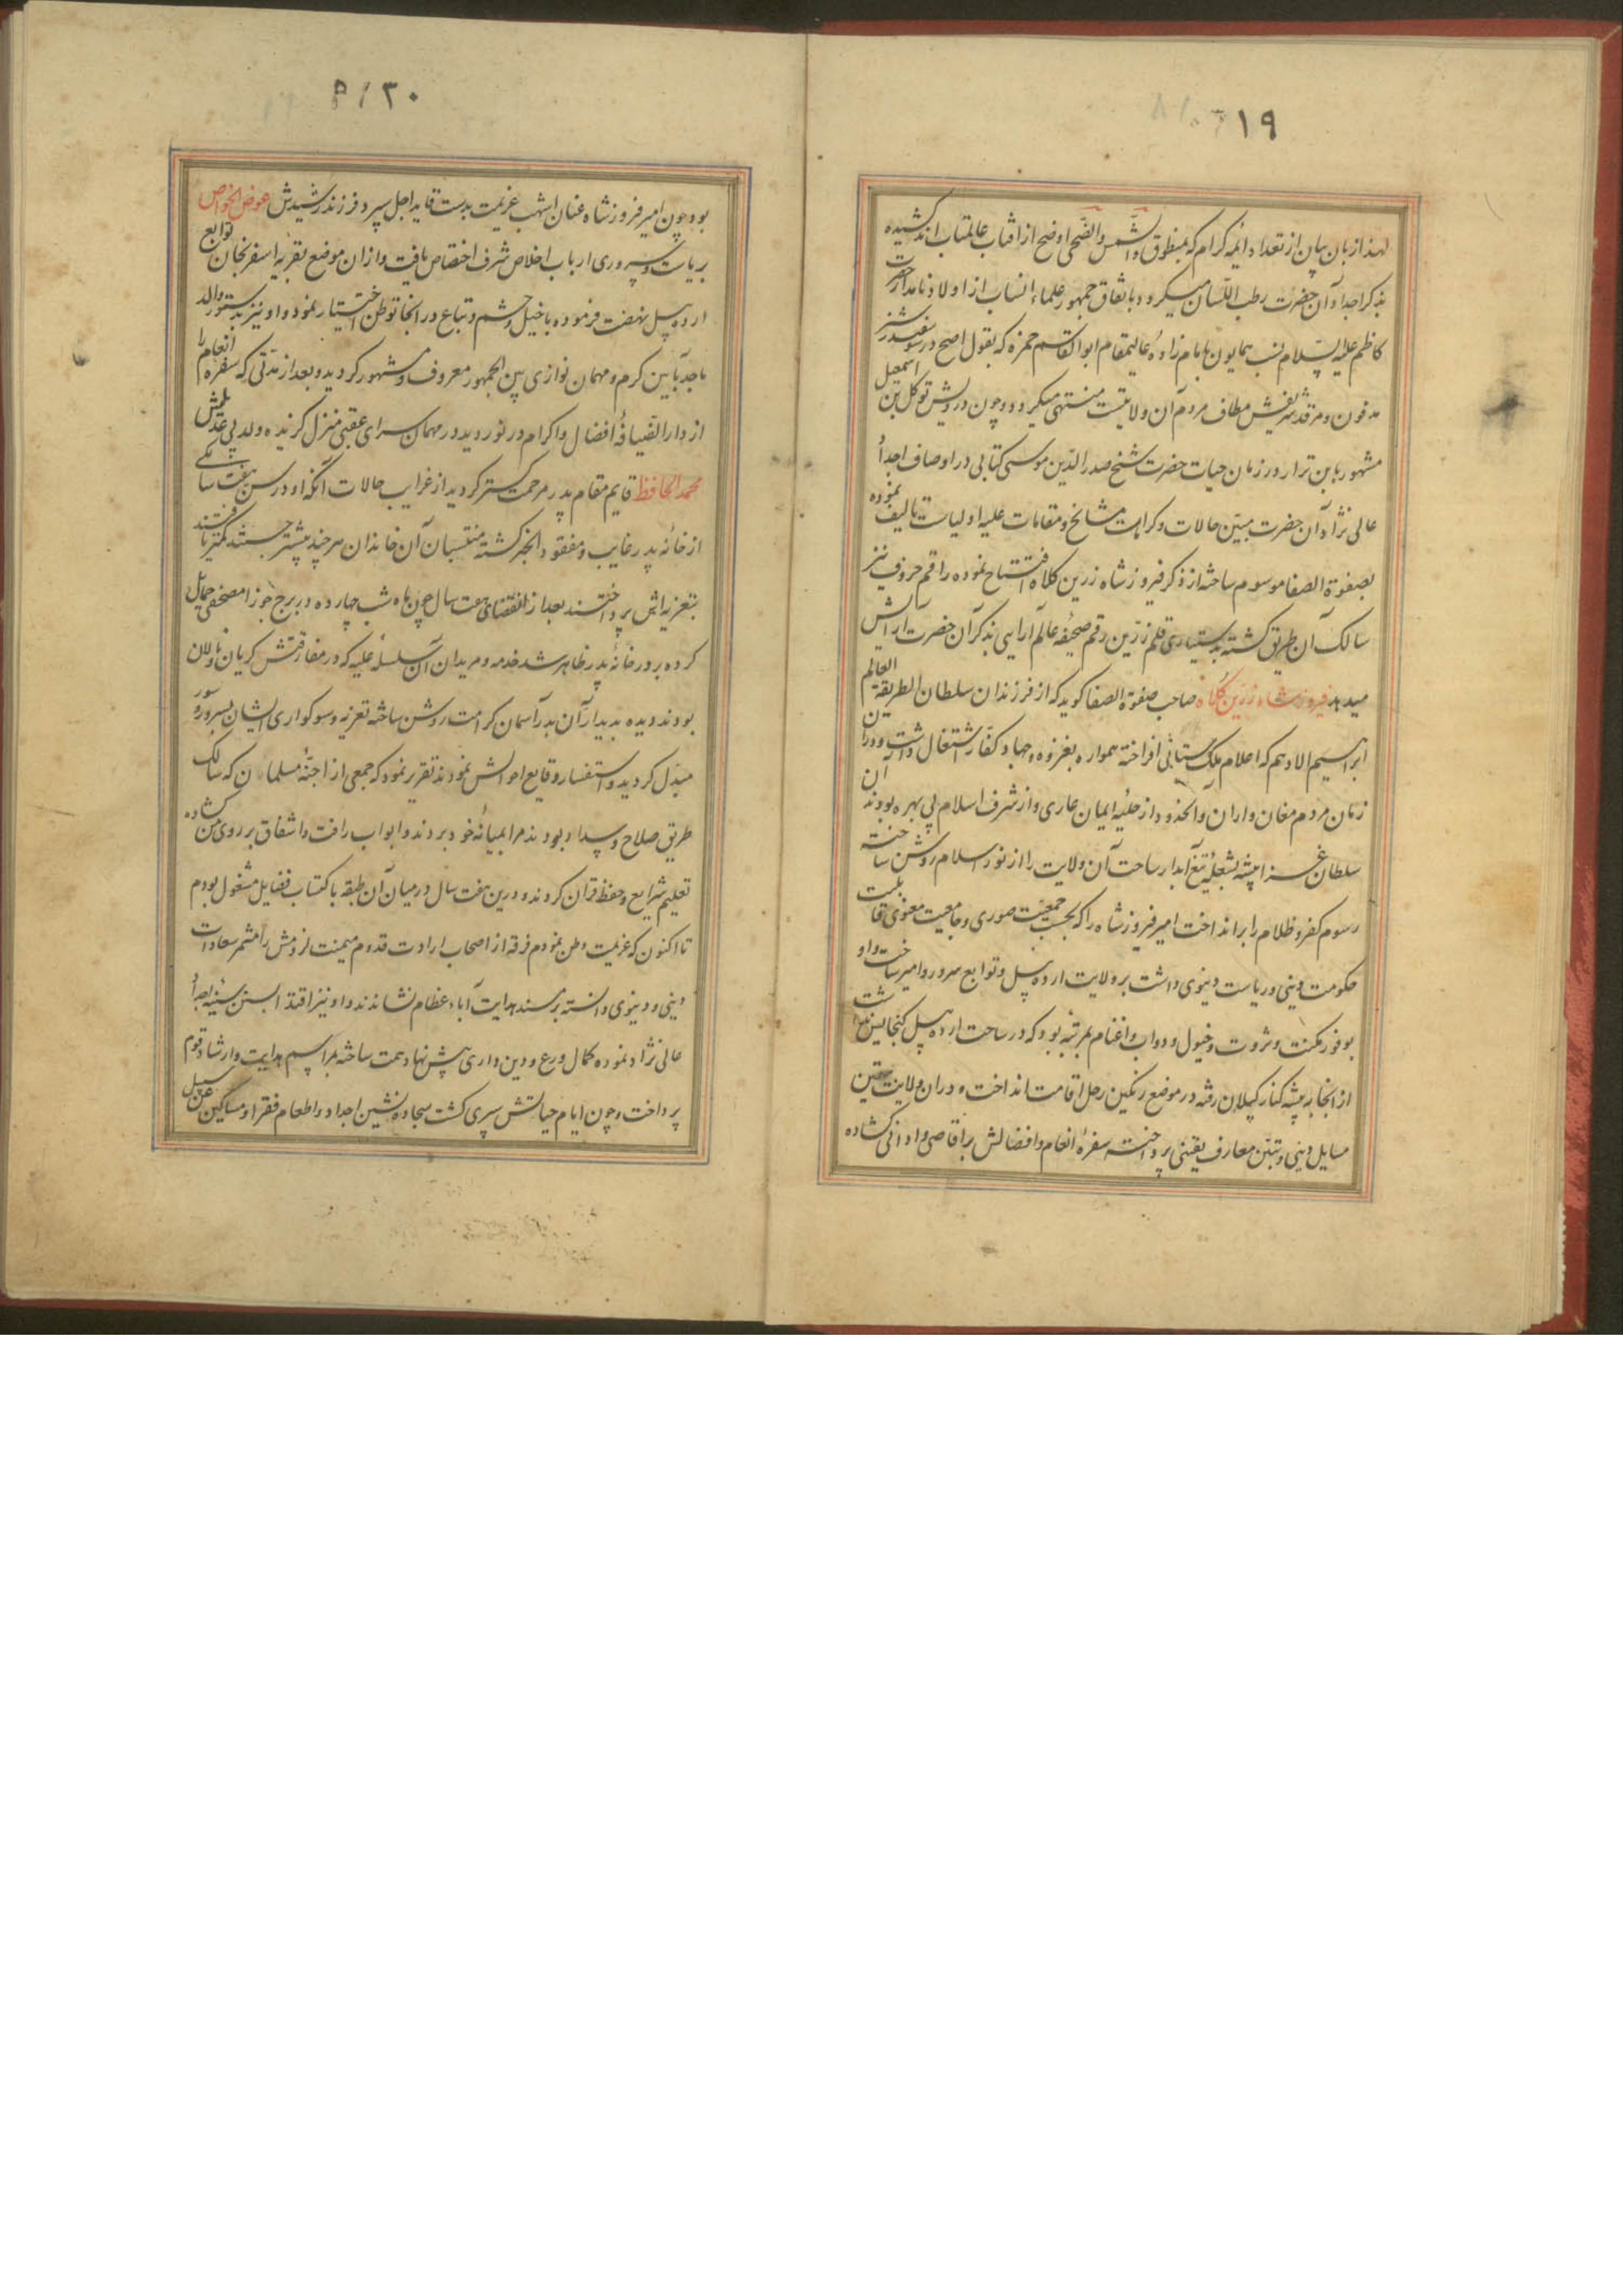 ۱۹
لهذا زبان بیان از تعداد ائمه کرام که بمنطوق والشمس والضحی اوضح از افتاب عالمتاب اند کشیده
بذکر اجداد آن حضرت رطب اللسان میکردد باتفاق جمهور علماء انساب از اولاد نامدار حضرت
کاظم علیه السلام نسب همایون بامام زاده عالیمقام ابوالقاسم حمزه که بقول اصح در
مدفون و مرقد شریفش مطاف مردم آن ولایتست منتهی میکردد و چون درویش توکل بن اسمعیل
مشهور بابن بزار در زمان حیات حضرت شیخ صدر الدین موسی کتابی در اوصاف اجداد
عالی نژاد آن حضرت مبین حالات و کرامات مشایخ و مقامات علیه اولیاست تالیف نموده
بصفوة الصفا موسوم ساخته از ذکر فیروز شاه زرین کلاه افتتاح نموده راقم حروف نیز
سالک آن طریق کشته بدستیاری قلم زرین رقم صحیفه عالم آرایی بذکر آن حضرت آرایش
میدهد فیروز شاه زرین کلاه صاحب صفوة الصفا کوید که از فرزندان سلطان الطریقة العالم
ابراهیم الادهم که اعلام ملک ستانی افراخته همواره بغزو و جهاد کفار اشتغال داشت و در آن
زمان مردم مغان و اران و الخذود از حلیه ایمان عاری و از شرف اسلام بی بهره بودند آن
سلطان غزا پیشه بشعله تیغ آبدار ساحت آن ولایت را از نور اسلام روشن ساخته
رسوم کفر و ظلام را برانداخت امیر فیروز شاه را که بحسب جمعیت صوری و جامعیت معنوی قابلیت
حکومت دینی و ریاست دنیوی داشت بر ولایت اردبیل و توابع سرور و امیر ساخت و او
بوفور مکنت و ثروت و خیول و دواب و اغنام بمرتبه بود که در ساحت اردبیل کنجایش نداشت
از انجا به بیشه کنار کیلان رفته در موضع رنکین رحل اقامت انداخت و در ان ولایت بتعیین
مسایل دینی و تبین معارف یقینی پرداخته سفره انعام و افضالش بر اقاصی و ادانی کشاده
۳۰
بود چون امیر فیروز شاه عنان اشهب عزیمت بدست قاید اجل سپرد فرزند رشیدش عوض الخواص
بریاست و سروری ارباب اخلاص شرف اختصاص یافت و از ان موضع بقریه اسفرنجان توابع
اردبیل نهضت فرموده با خیل و حشم و تباع در انجا توطن اختیار نمود و او نیز بدستور والد
ماجد بآیین کرم و مهمان نوازی بین الجمهور معروف و مشهور کردید و بعد از مدتی که سفره انعام را
از دار الضیافه افضال و اکرام در نوردید در مهمان سرای عقبی منزل کزیده ولد بی عدیلش
محمد الحافظ قایم مقام پدر مرحمت کستر کردید از غرایب حالات آنکه او در سن هفت سالکی
از خانه پدر غایب و مفقود الخبر کشته منتسبان آن خاندان هر چند بیشتر جستند کمتر یافتند
بتعزیه اش پرداختند بعد از انقضای هفت سال چون ماه شب چهارده در برج جوزا مصحفی حمایل
کرده بر در خانه پدر ظاهر شد خدمه و مریدان آن سلسله علیه که در مفارقتش کریان و نالان
بودند دیده بدیدار آن بدر آسمان کرامت روشن ساخته تعزیه و سوکواری ایشان بسرور و سور
مبدل کردید و استفسار وقایع احوالش نمودند تقریر نمود که جمعی از اجنه مسلمانان که سالک
طریق صلاح و سداد بودند مرا بمیانه خود بردند و ابواب رافت و اشفاق بر روی من کشاده
تعلیم شرایع و حفظ قران کردند و درین هفت سال در میان آن طبقه باکتساب فضایل مشغول بودم
تا اکنون که عزیمت وطن نمودم فرقه از اصحاب ارادت قدوم میمنت لزومش را مثمر سعادات
دینی و دنیوی دانسته بر مسند هدایت آباء عظام نشاندند و او نیز اقتدا بسنن سنیه اجداد
عالی نژاد نموده کمال ورع و دین داری پیش نهاد همت ساخته بمراسم هدایت و ارشاد قوم
پرداخت و چون ایام حیاتش سپری کشت سجاده نشین اجداد و اطعام فقرا و مساکین